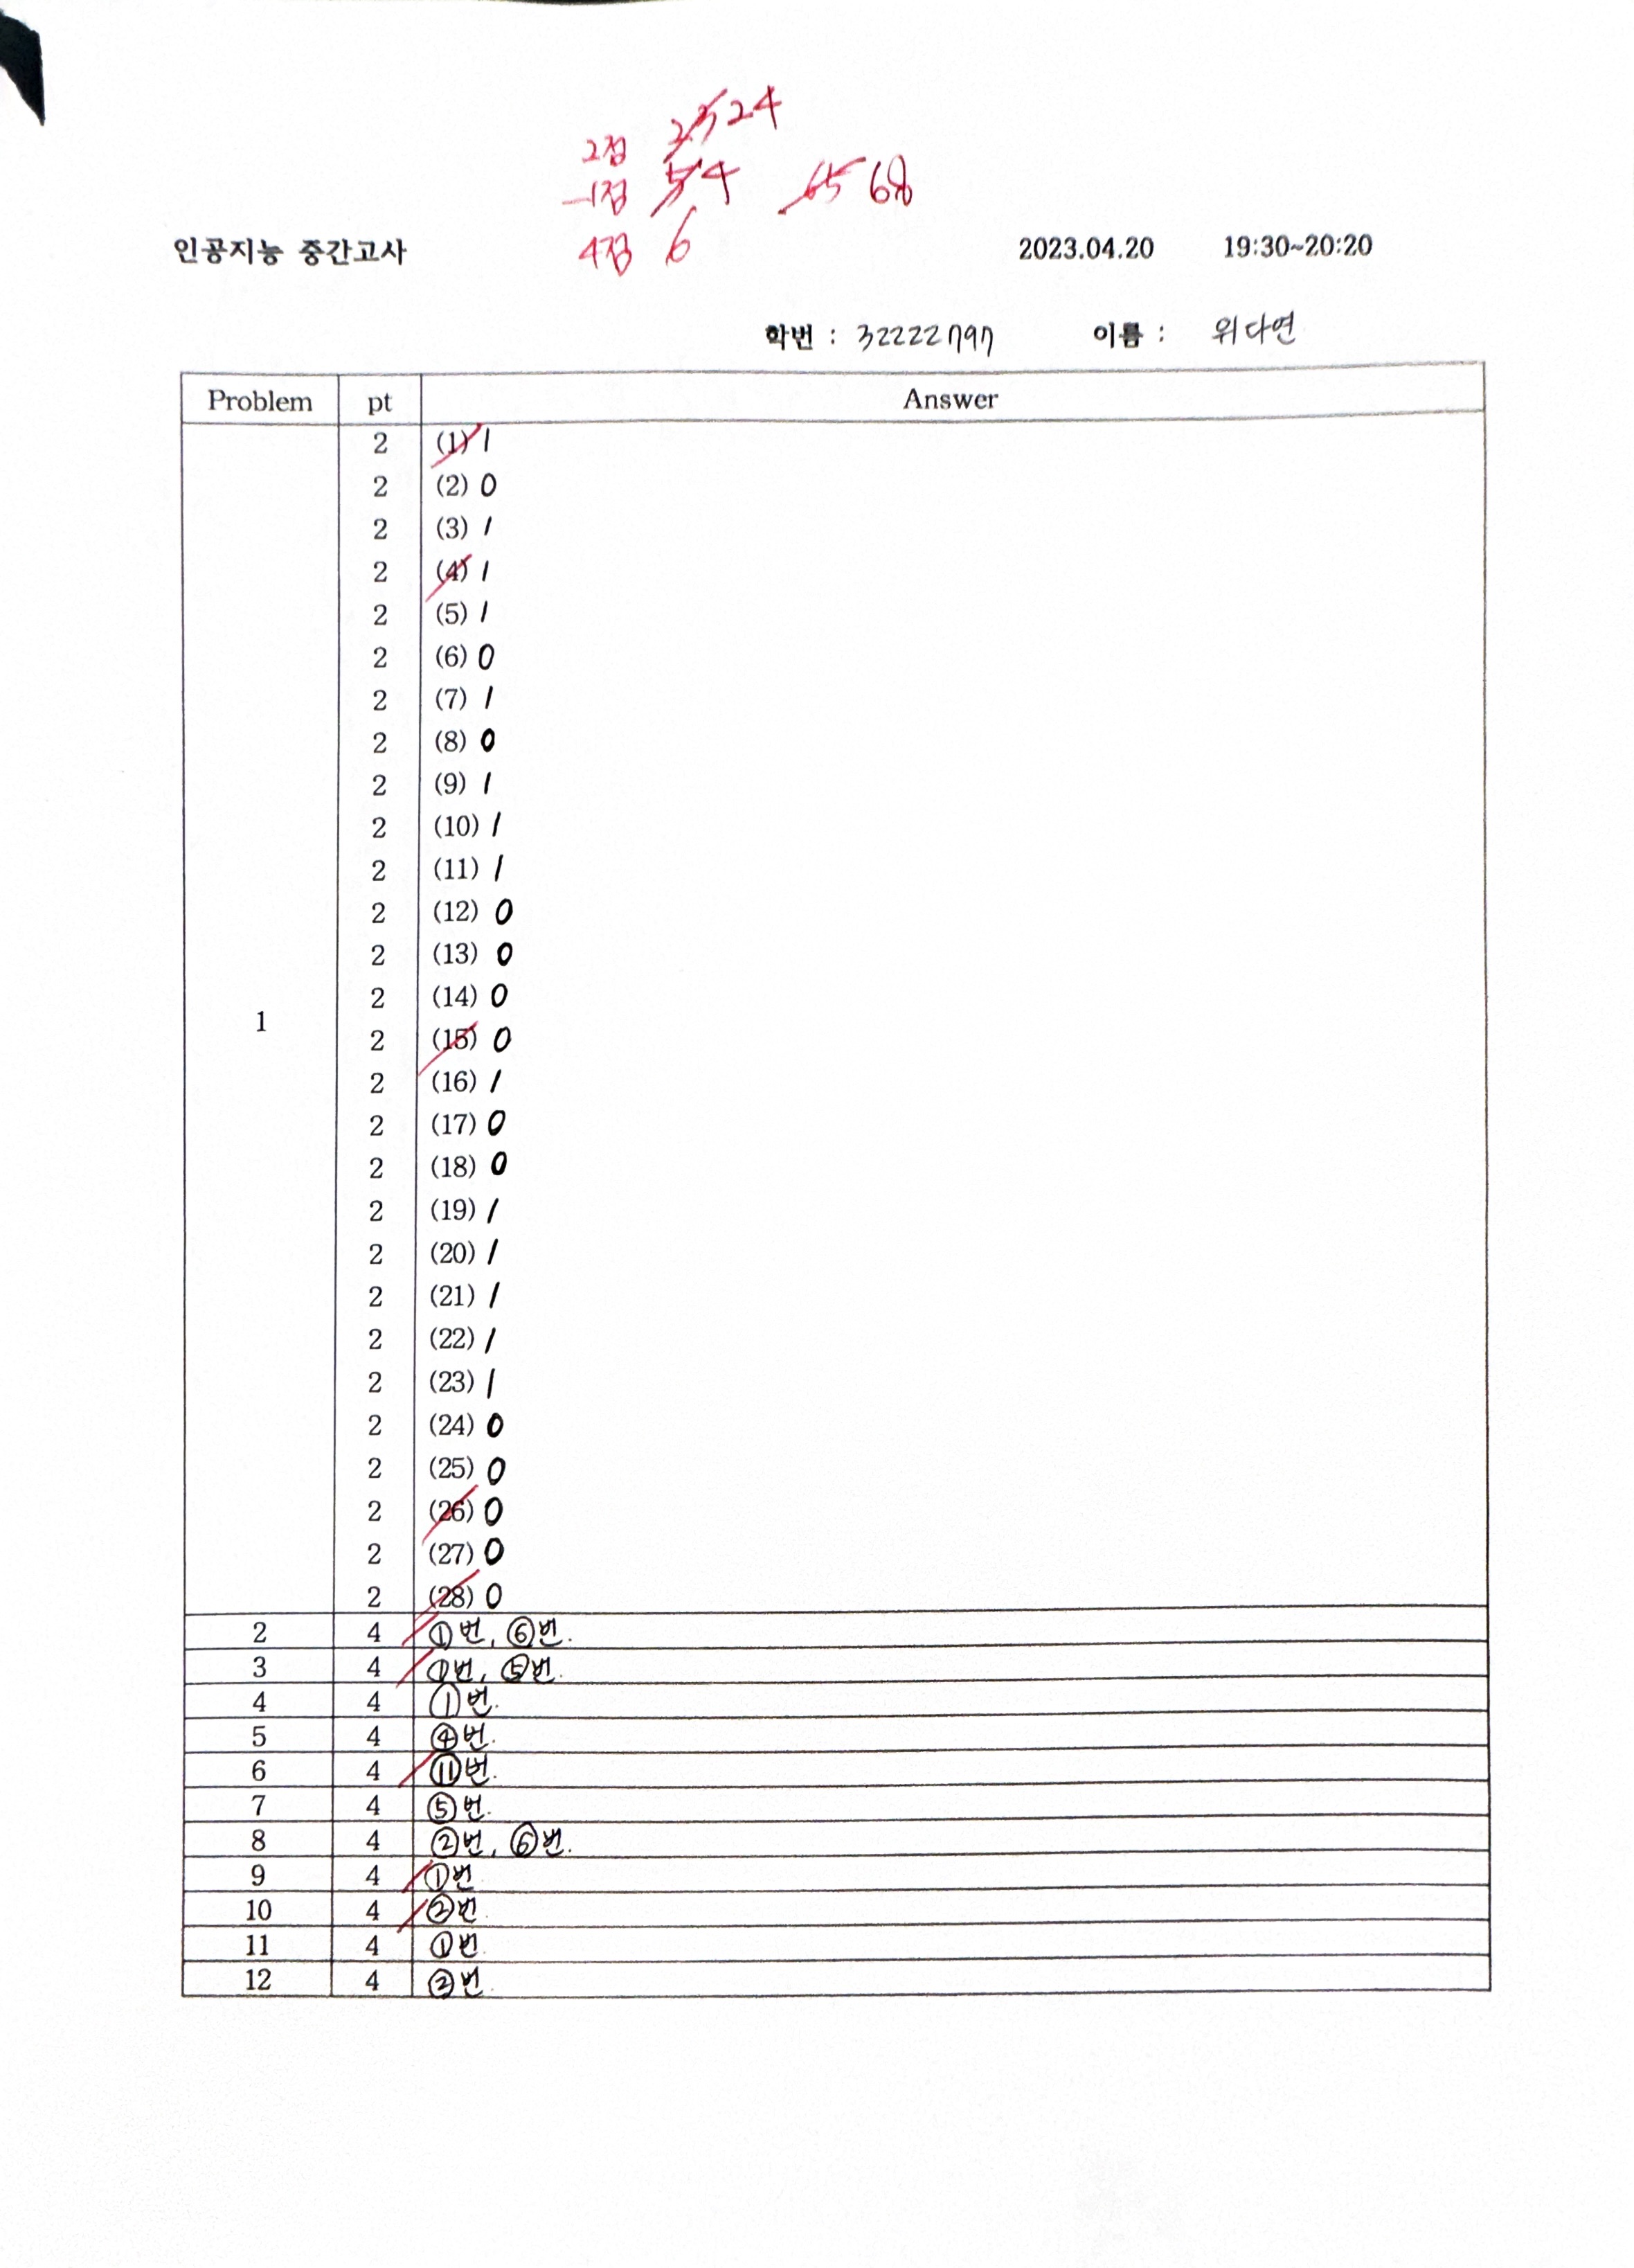 2점 23 24
-1점 5 4 65 68
4점 6
인공지능 중간고사 2023.04.20 19:30~20:20
학번 : 32222797 이름 : 위다연
Problem pt Answer
2 (1) 1
2 (2) 0
2 (3) 1
2 (4) 1
2 (5) 1
2 (6) 0
2 (7) 1
2 (8) 0
2 (9) 1
2 (10) 1
2 (11) 1
2 (12) 0
2 (13) 0
2 (14) 0
1
2 (15) 0
2 (16) 1
2 (17) 0
2 (18) 0
2 (19) 1
2 (20) 1
2 (21) 1
2 (22) 1
2 (23) 1
2 (24) 0
2 (25) 0
2 (26) 0
2 (27) 0
2 (28) 0
2 4 ①번, ⑥번.
3 4 ①번, ⑤번.
4 4 ①번.
5 4 ④번.
6 4 ⑪번.
7 4 ⑤번.
8 4 ②번, ⑥번.
9 4 ①번
10 4 ②번.
11 4 ①번
12 4 ②번.